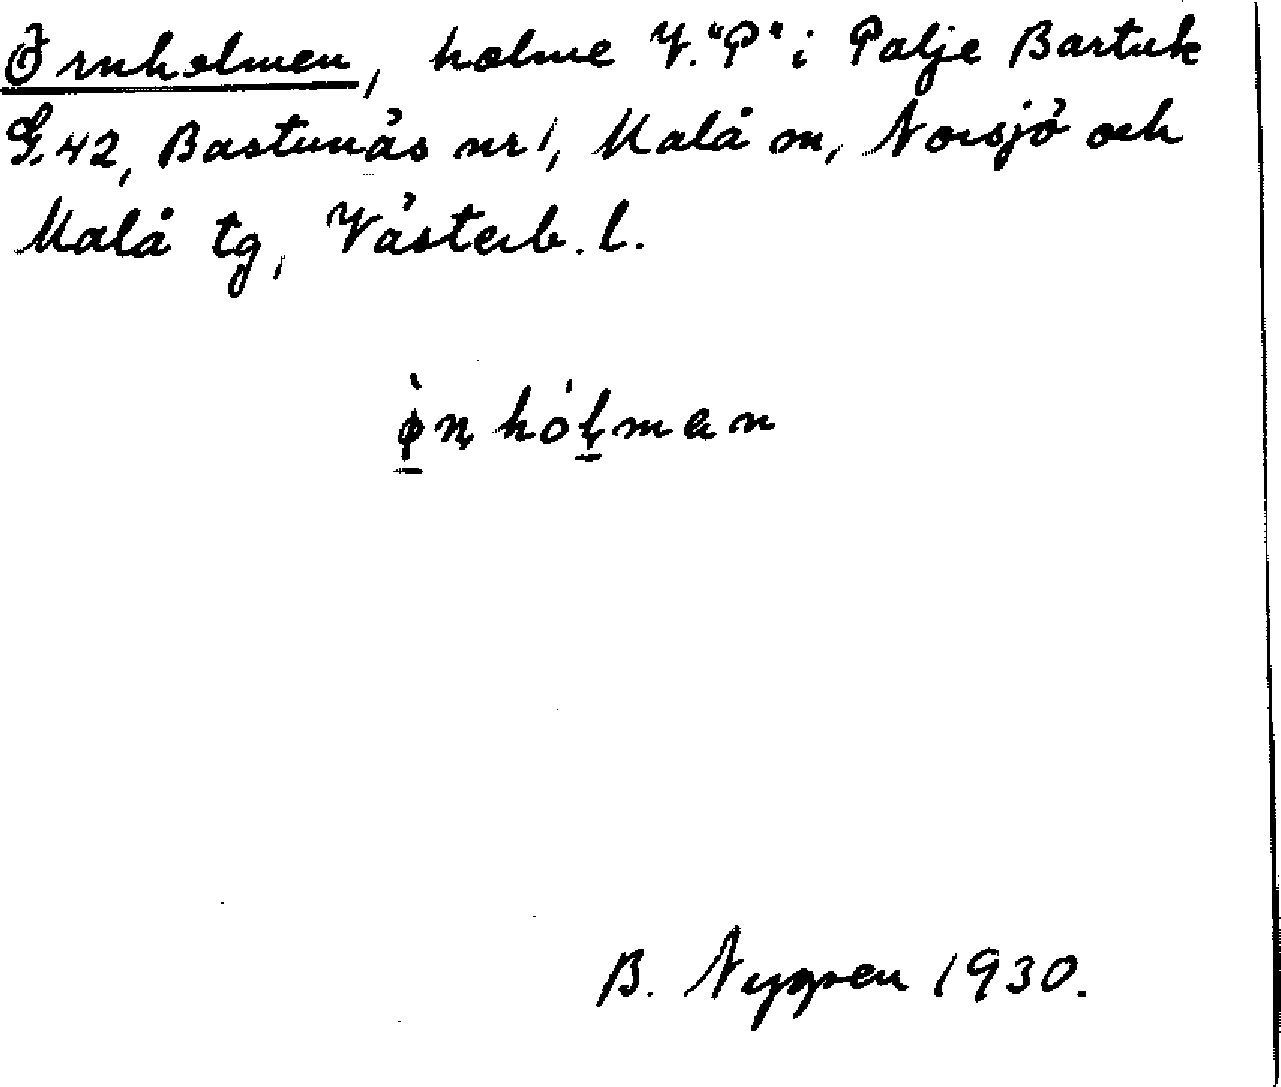 Örnholmen, holme V. "P" i Palje Bastuk
G.42, Bastunäs nr 1, Malå sn, Norsjö och
Malå tg, Västerb. l.
ø̀n̥hólman
B. Nygren 1930.